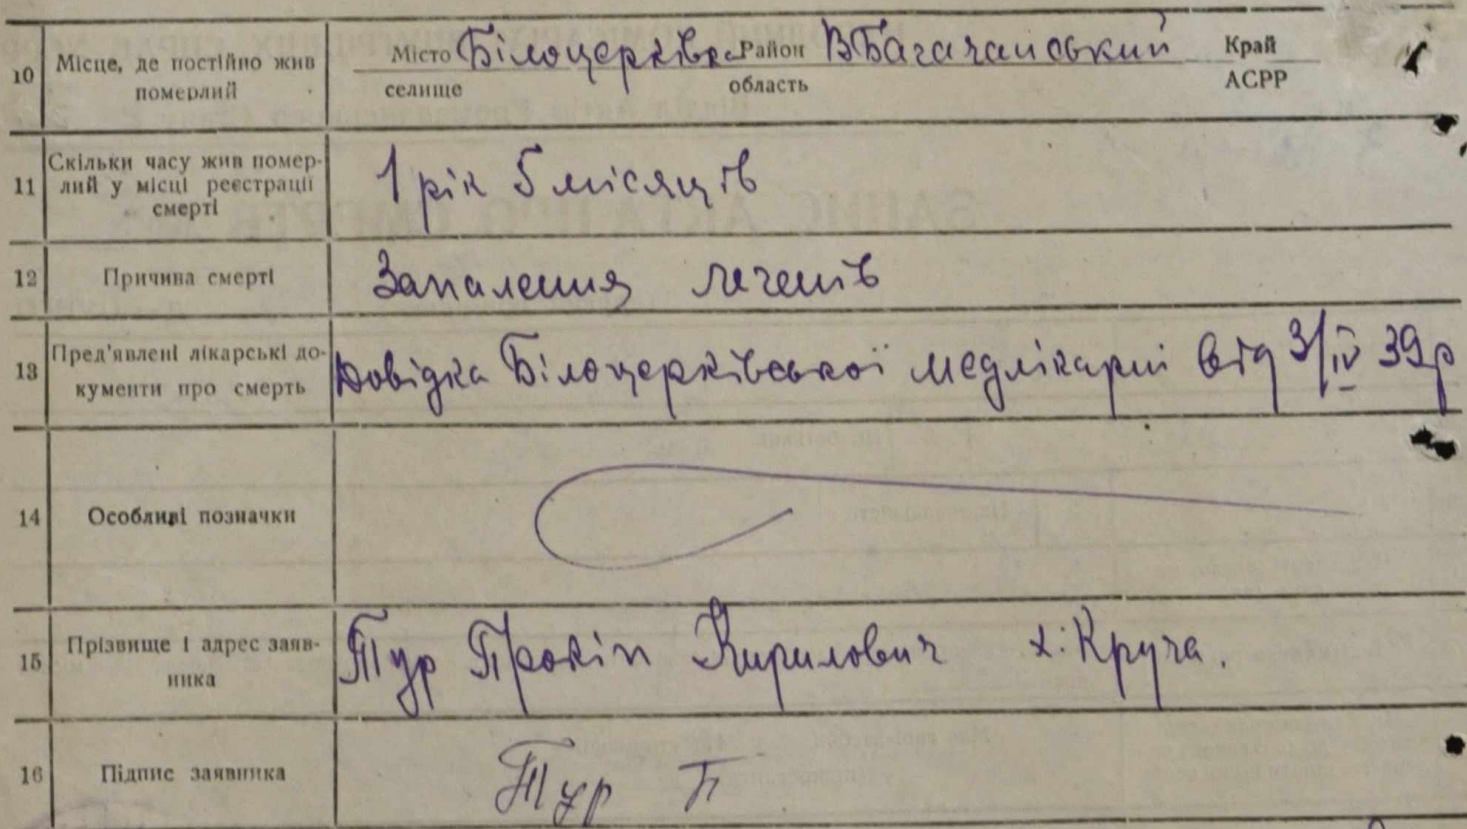 10 Місце, де постійно жив померлий
Місто селище Білоцерківка Район область ВБагачанський Край АСРР
11 Скільки часу жив помер-
лий у місці реєстрації
смерті
1 рік 5 місяців
12 Причина смерті
Запалення легенів
13 Пред'явлені лікарські до-
кументи про смерть
Довідка Білоцерківської медлікарні від 3/IV 39р
14 Особливі позначки
15 Прізвище і адрес заяв-
ника
Тур Прокіп Кирилович х. Круча.
16 Підпис заявника
Тур П